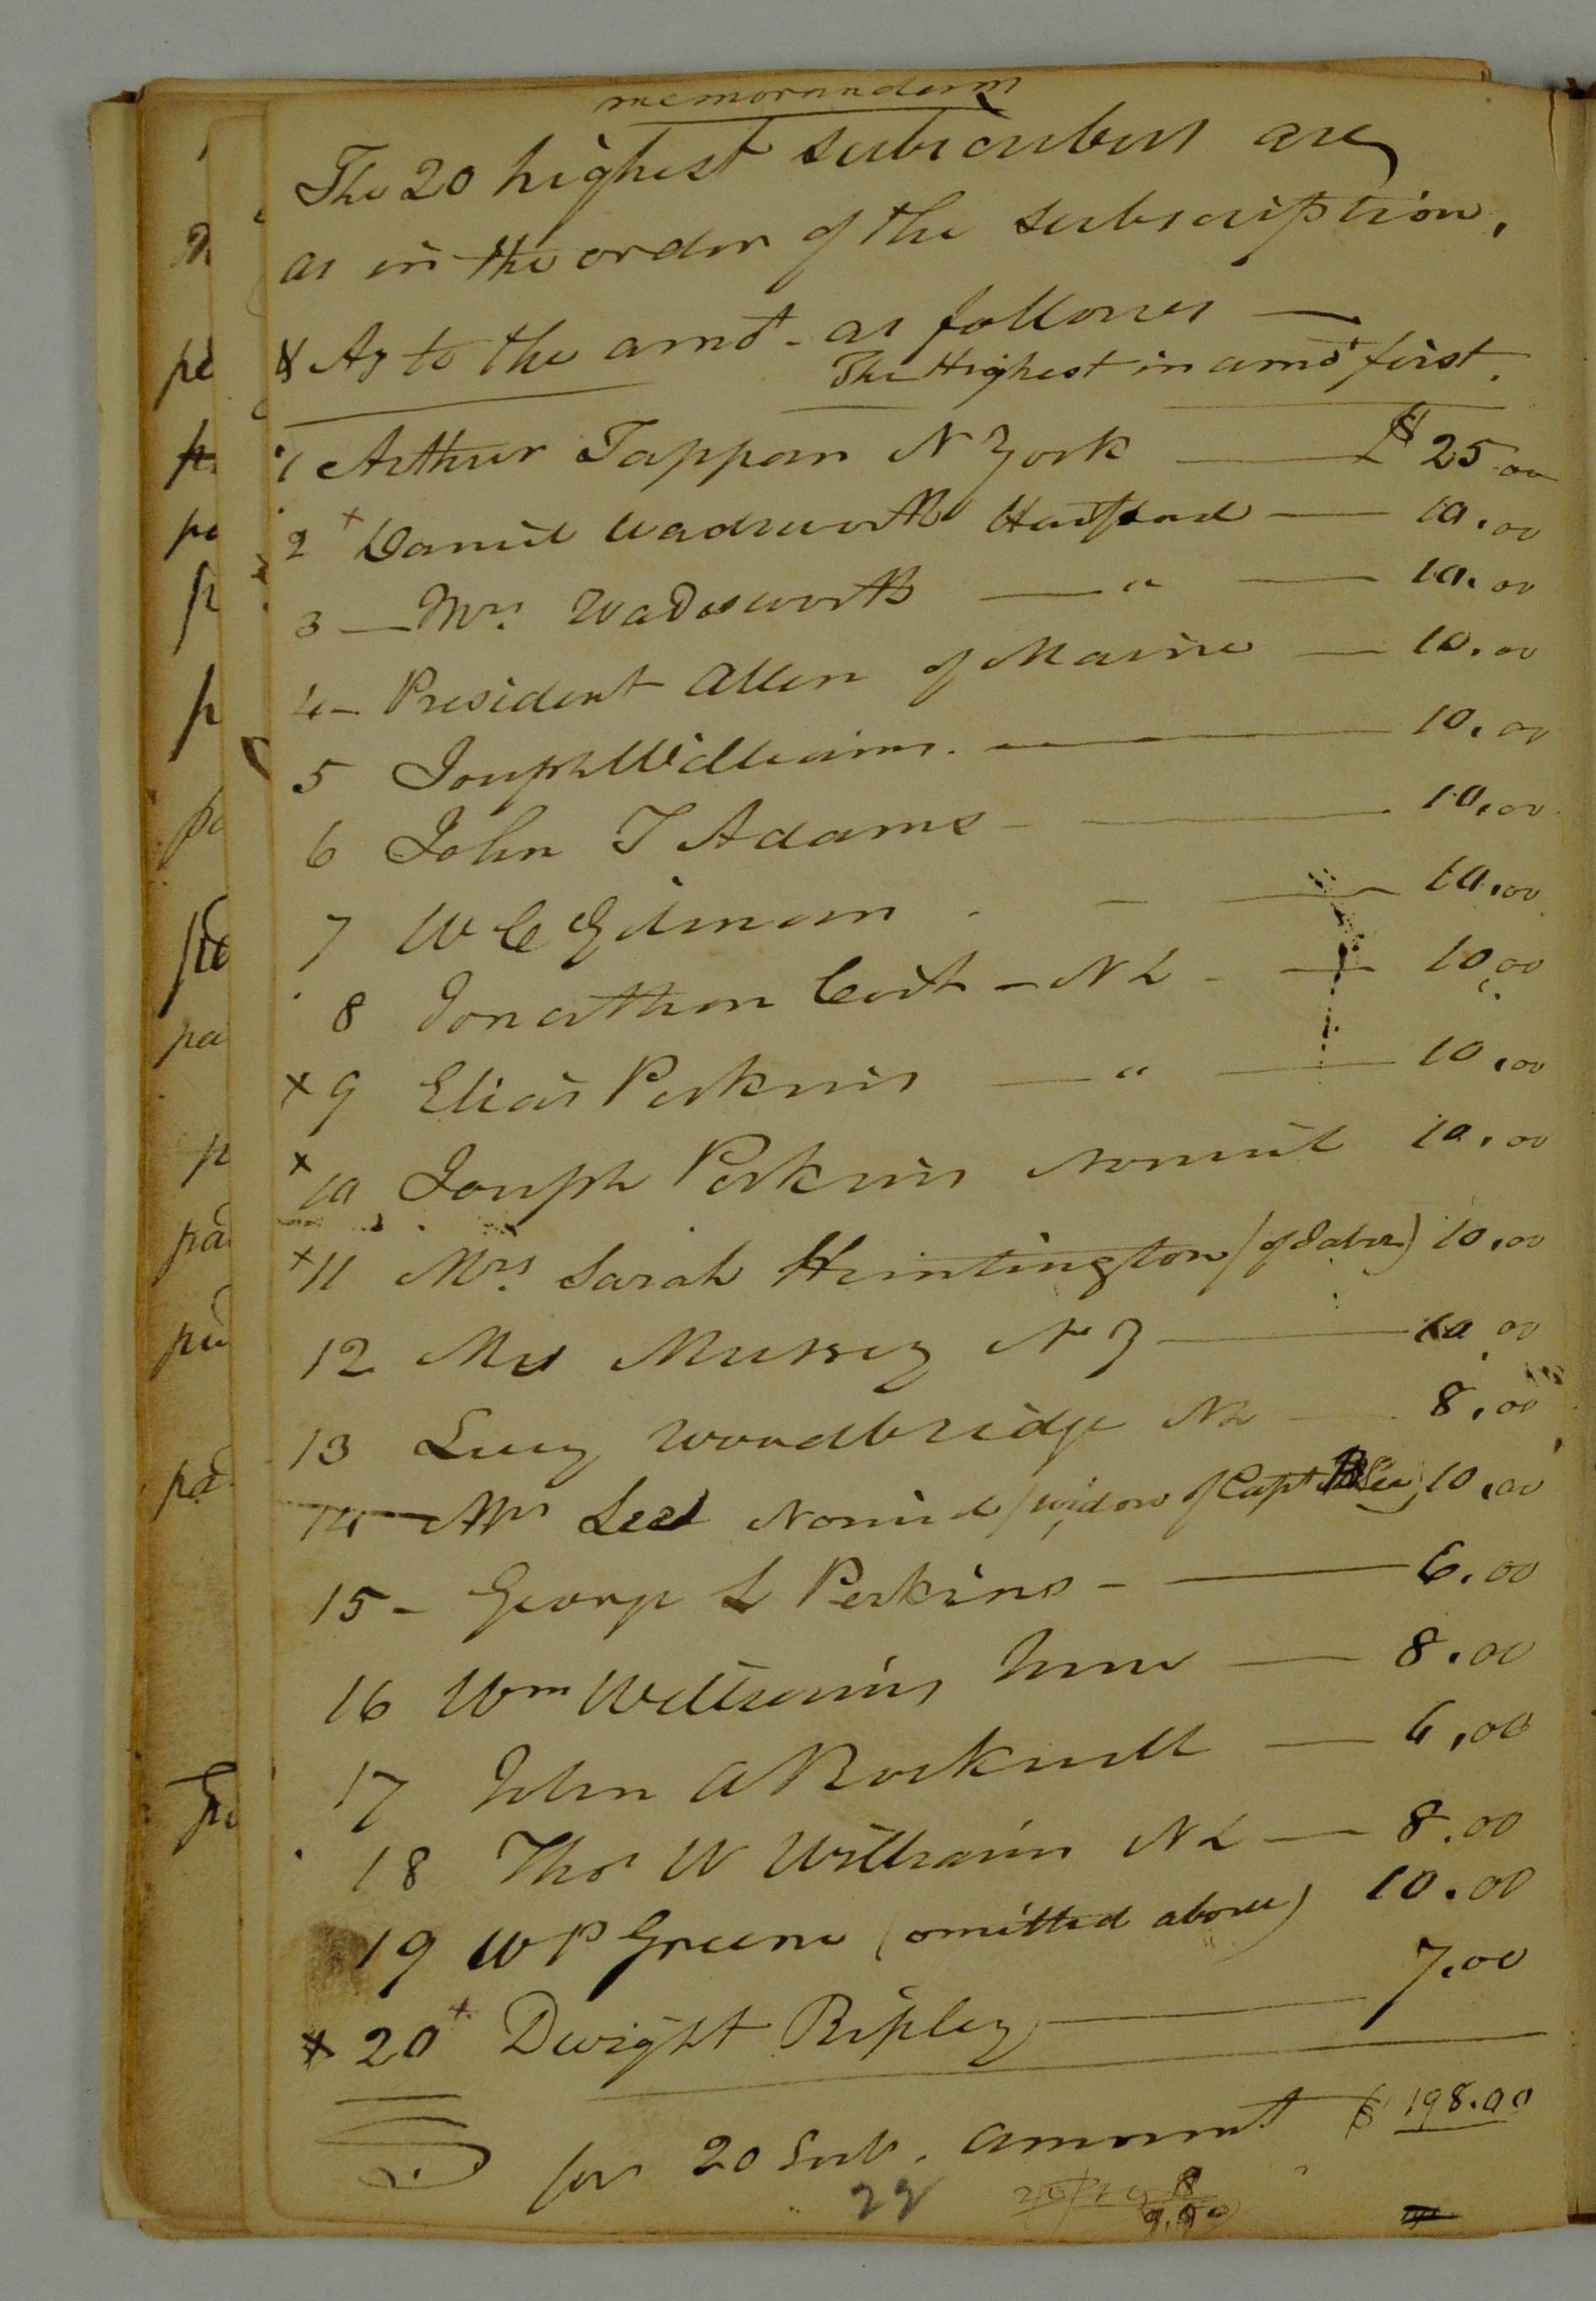 memorandum
The 20 highest subscribers are
as in the order of the subscription,
& As to the amot. as follows —
The Highest in amot first.
1 Arthur Tappan N York — $ 25.00
2 + Daniel Wadsworth Hartford — 10.00
3 — Mrs. Wadsworth — " — 10.00
4 - President Allen of Maine — 10.00
5 Joseph Williams. — 10.00
6 John T Adams — 10.00
7 W C Gilman — 10.00
8 Jonathan Coit - N L - — 10.00
x 9 Elias Perkins — " — 10.00
x 10 Joseph Perkins Norwich 10.00
x 11 Mrs. Sarah Huntington (of Jabez) 10.00
12 Mrs Mussey N Y — 10.00
13 Lucy Woodbridge NL — 8.00
14 — Mrs Lee Norwich (widow of Capt Lee) 10.00
15 - George L Perkins - — 6.00
16 Wm Williams Junr — 8.00
17 John A Rockwell — 6.00
18 Thos W Williams N L — 8.00
19 W P Greene (omitted above) 10.00
x 20 + Dwight Ripley — 7.00
for 20 Sub. amount $ 198.00
22 20/198
9.90